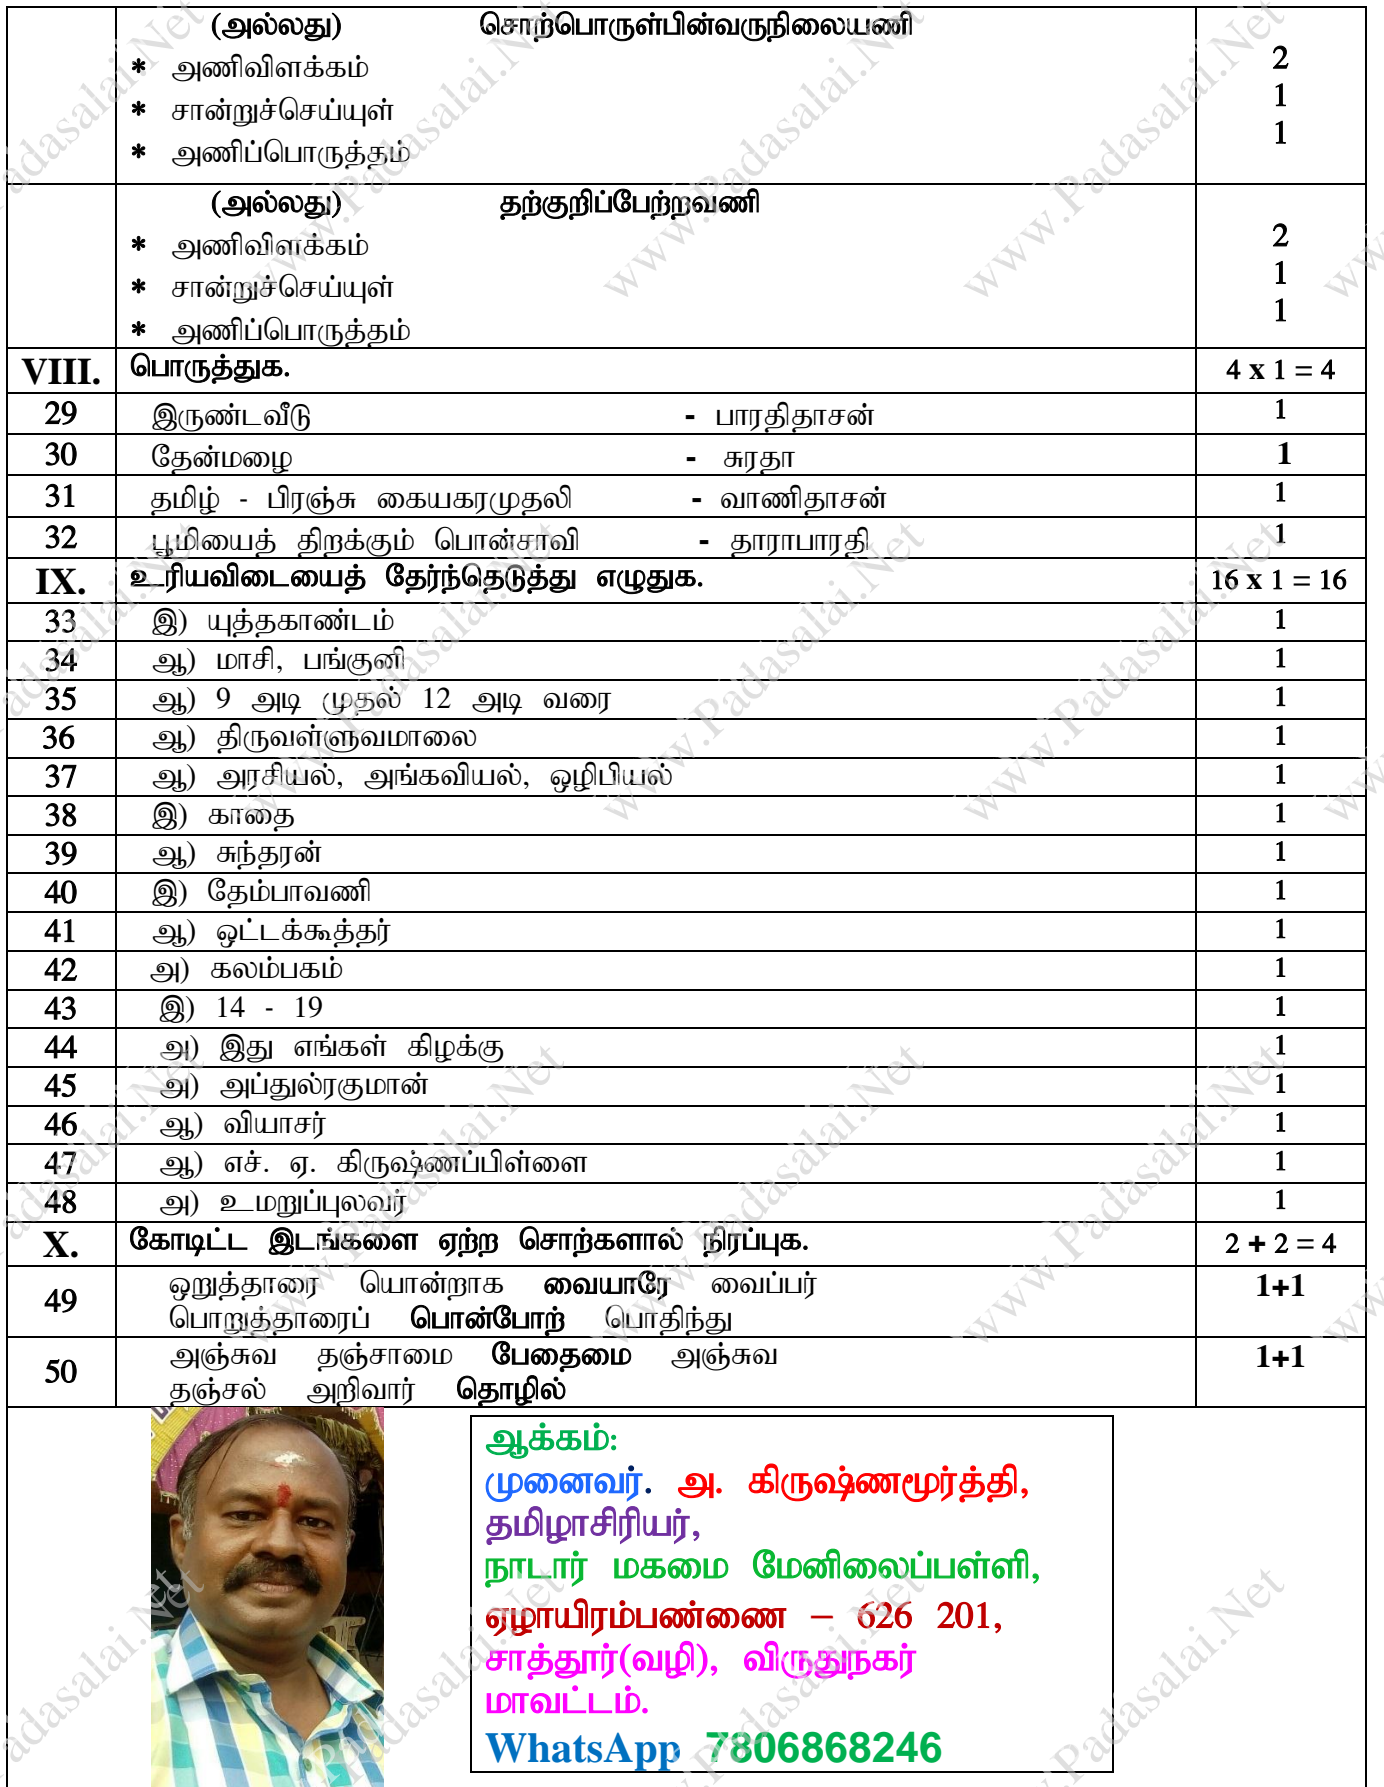 (அல்லது) சொற்பொருள்பின்வருநிலையணி
* அணிவிளக்கம் 2
* சான்றுச்செய்யுள் 1
* அணிப்பொருத்தம் 1
(அல்லது) தற்குறிப்பேற்றவணி
* அணிவிளக்கம் 2
* சான்றுச்செய்யுள் 1
* அணிப்பொருத்தம் 1
VIII. பொருத்துக. 4 x 1 = 4
29 இருண்டவீடு - பாரதிதாசன் 1
30 தேன்மழை - சுரதா 1
31 தமிழ் - பிரஞ்சு கையகரமுதலி - வாணிதாசன் 1
32 பூமியைத் திறக்கும் பொன்சாவி - தாராபாரதி 1
IX. உரியவிடையைத் தேர்ந்தெடுத்து எழுதுக. 16 x 1 = 16
33 இ) யுத்தகாண்டம் 1
34 ஆ) மாசி, பங்குனி 1
35 ஆ) 9 அடி முதல் 12 அடி வரை 1
36 ஆ) திருவள்ளுவமாலை 1
37 ஆ) அரசியல், அங்கவியல், ஒழிபியல் 1
38 இ) காதை 1
39 ஆ) சுந்தரன் 1
40 இ) தேம்பாவணி 1
41 ஆ) ஒட்டக்கூத்தர் 1
42 அ) கலம்பகம் 1
43 இ) 14 - 19 1
44 அ) இது எங்கள் கிழக்கு 1
45 அ) அப்துல்ரகுமான் 1
46 ஆ) வியாசர் 1
47 ஆ) எச். ஏ. கிருஷ்ணப்பிள்ளை 1
48 அ) உமறுப்புலவர் 1
X. கோடிட்ட இடங்களை ஏற்ற சொற்களால் நிரப்புக. 2 + 2 = 4
49 ஒறுத்தாரை யொன்றாக வையாரே வைப்பர் 1+1
பொறுத்தாரைப் பொன்போற் பொதிந்து
50 அஞ்சுவ தஞ்சாமை பேதைமை அஞ்சுவ 1+1
தஞ்சல் அறிவார் தொழில்
ஆக்கம்:
முனைவர். அ. கிருஷ்ணமூர்த்தி,
தமிழாசிரியர்,
நாடார் மகமை மேனிலைப்பள்ளி,
ஏழாயிரம்பண்ணை – 626 201,
சாத்தூர்(வழி), விருதுநகர்
மாவட்டம்.
WhatsApp 7806868246
www.Padasalai.Net